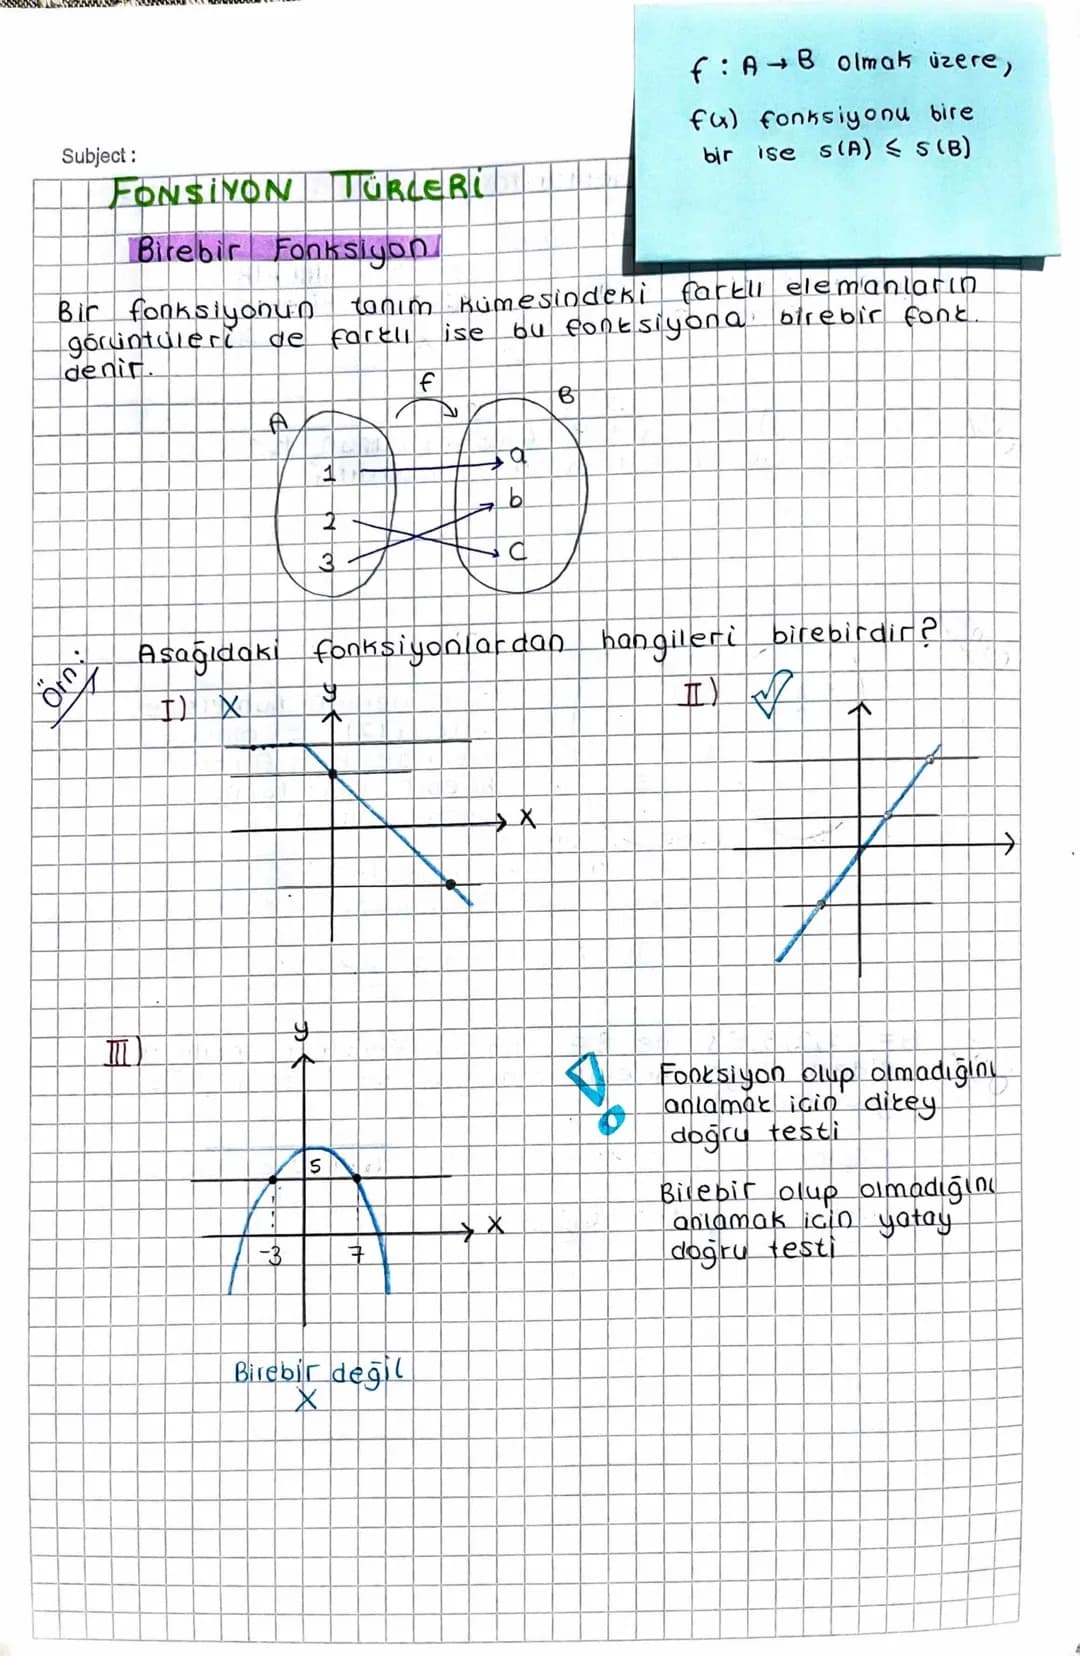 f : A → B olmak üzere,
f(x) fonksiyonu bire
bir ise s(A) ≤ s(B)
Subject :
FONSİYON TÜRLERİ
Birebir Fonksiyon
Bir fonksiyonun tanım kümesindeki farklı elemanların
görüntüleri de farklı ise bu fonksiyona birebir fonk.
denir.
f
A
B
1
a
2
b
3
C
Örn:
Aşağıdaki fonksiyonlardan hangileri birebirdir?
I) X
y
II) ✓
X
III)
y
5
-3
7
X
Birebir değil
X
Fonksiyon olup olmadığını
anlamak için dikey
doğru testi
Birebir olup olmadığını
anlamak için yatay
doğru testi